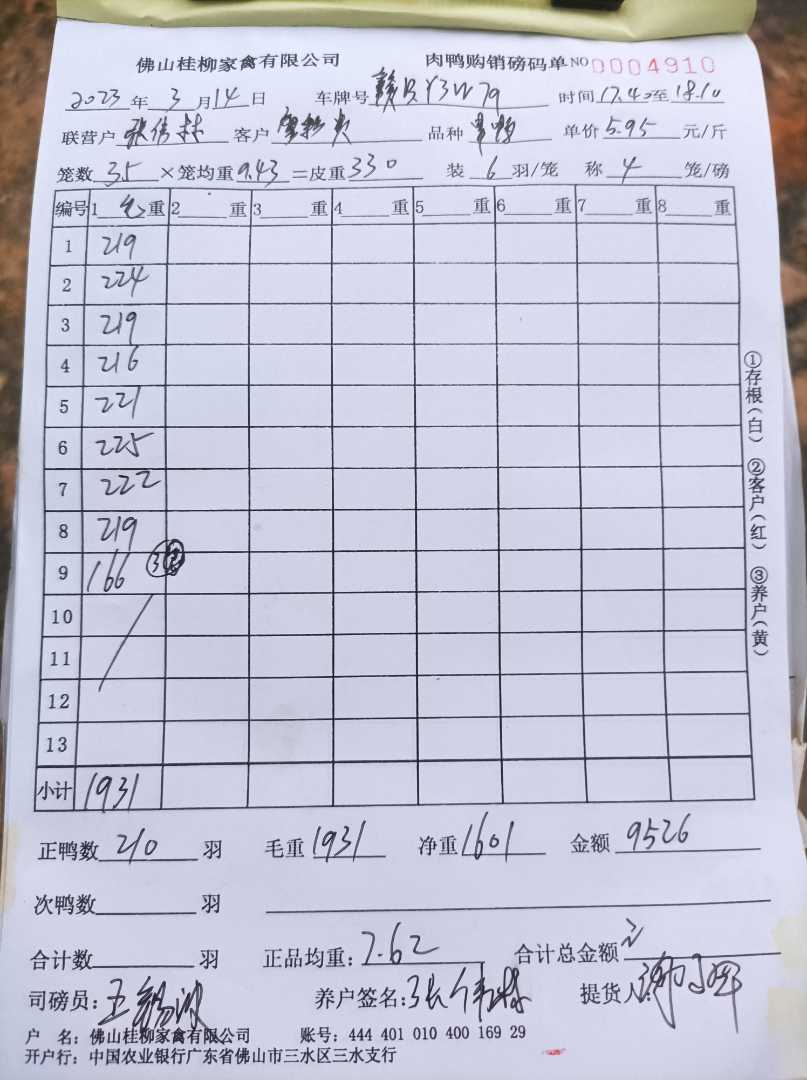 佛山桂柳家禽有限公司 肉鸭购销磅码单 NO 0004910
2023年3月14日 车牌号 赣 Y3W79 时间17.40至18.10
联营户 张伟林 客户 品种 单价5.95元/斤
笼数35×笼均重9.43=皮重330 装6羽/笼 称4笼/磅
编号 1 毛重 2 重 3 重 4 重 5 重 6 重 7 重 8 重
1 219
2 224
3 219
4 216
5 221
6 225
7 222
8 219
9 166 ③
10
11
12
13
小计 1931
正鸭数 210 羽 毛重 1931 净重 1601 金额 9526
次鸭数 羽
合计数 羽 正品均重: 7.62 合计总金额
司磅员: 王 养户签名: 张伟林 提货人: 谢
户 名: 佛山桂柳家禽有限公司 账号: 444 401 010 400 169 29
开户行: 中国农业银行广东省佛山市三水区三水支行
①存根(白) ②客户(红) ③养户(黄)